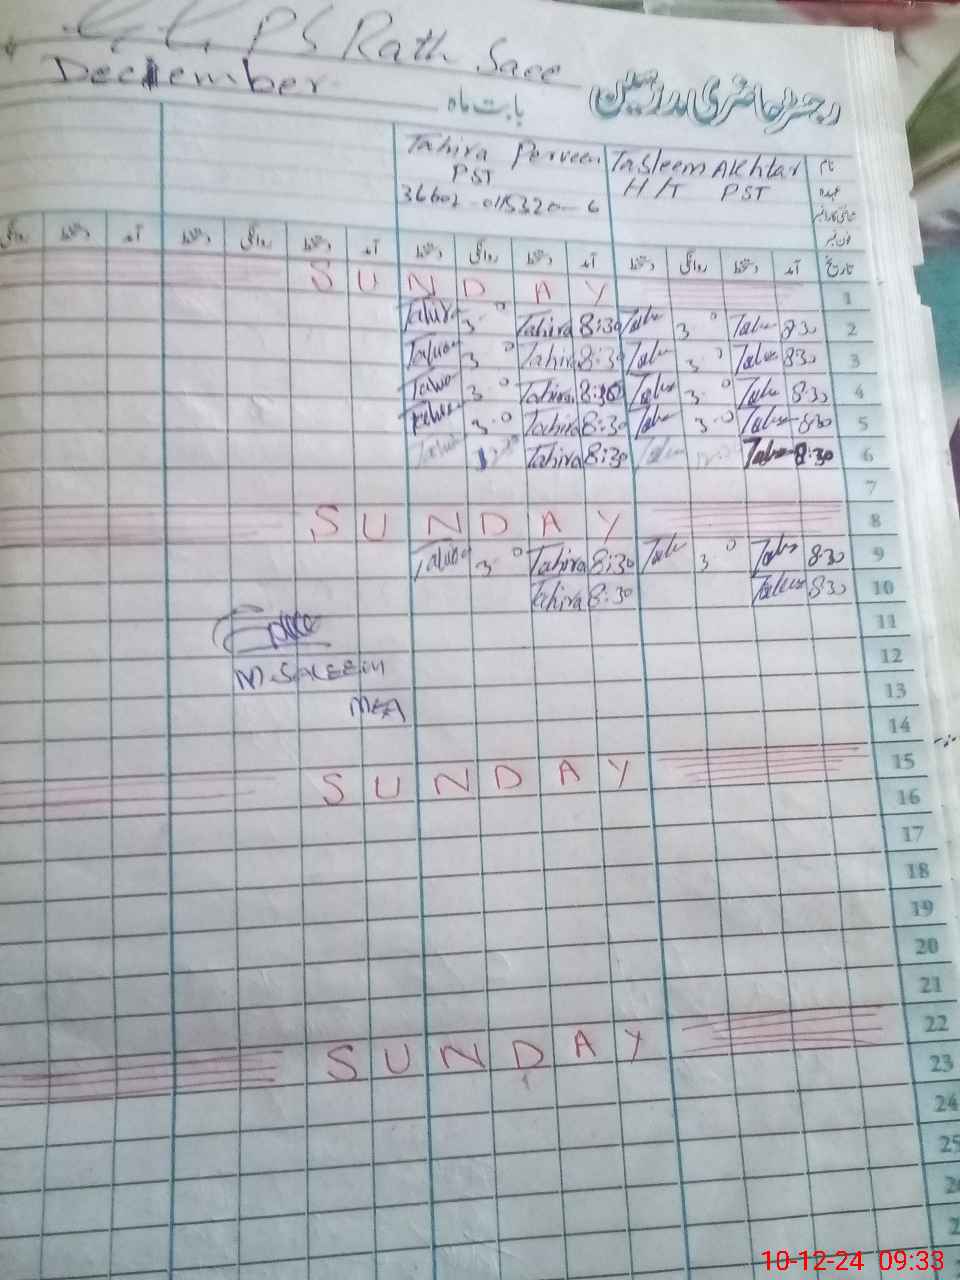 PS Rath Saee
December
رجسٹر حاضری مدرسین
بابت ماہ
نام Tasleem Akhtar Tahira Perveen
عہدہ H/T PST PST
شناختی کارڈ نمبر 36602-0115320-6
فون نمبر
تاریخ آمد دستخط روانگی دستخط آمد دستخط روانگی دستخط آمد دستخط روانگی دستخط آمد دستخط روانگی
SUNDAY 1
3.0 Tahira 8:30 3.0 8:30 2
3.0 Tahira 8:30 3.0 8:30 3
3.0 Tahira 8:30 3.0 8:30 4
3.0 Tahira 8:30 3.0 8:30 5
Tahira 8:30 8:30 6
7
SUNDAY 8
3.0 Tahira 8:30 3.0 8:30 9
Tahira 8:30 8:30 10
11
M. Saleem 12
MEA 13
14
15
SUNDAY 16
17
18
19
20
21
22
SUNDAY 23
24
25
10-12-24 09:33